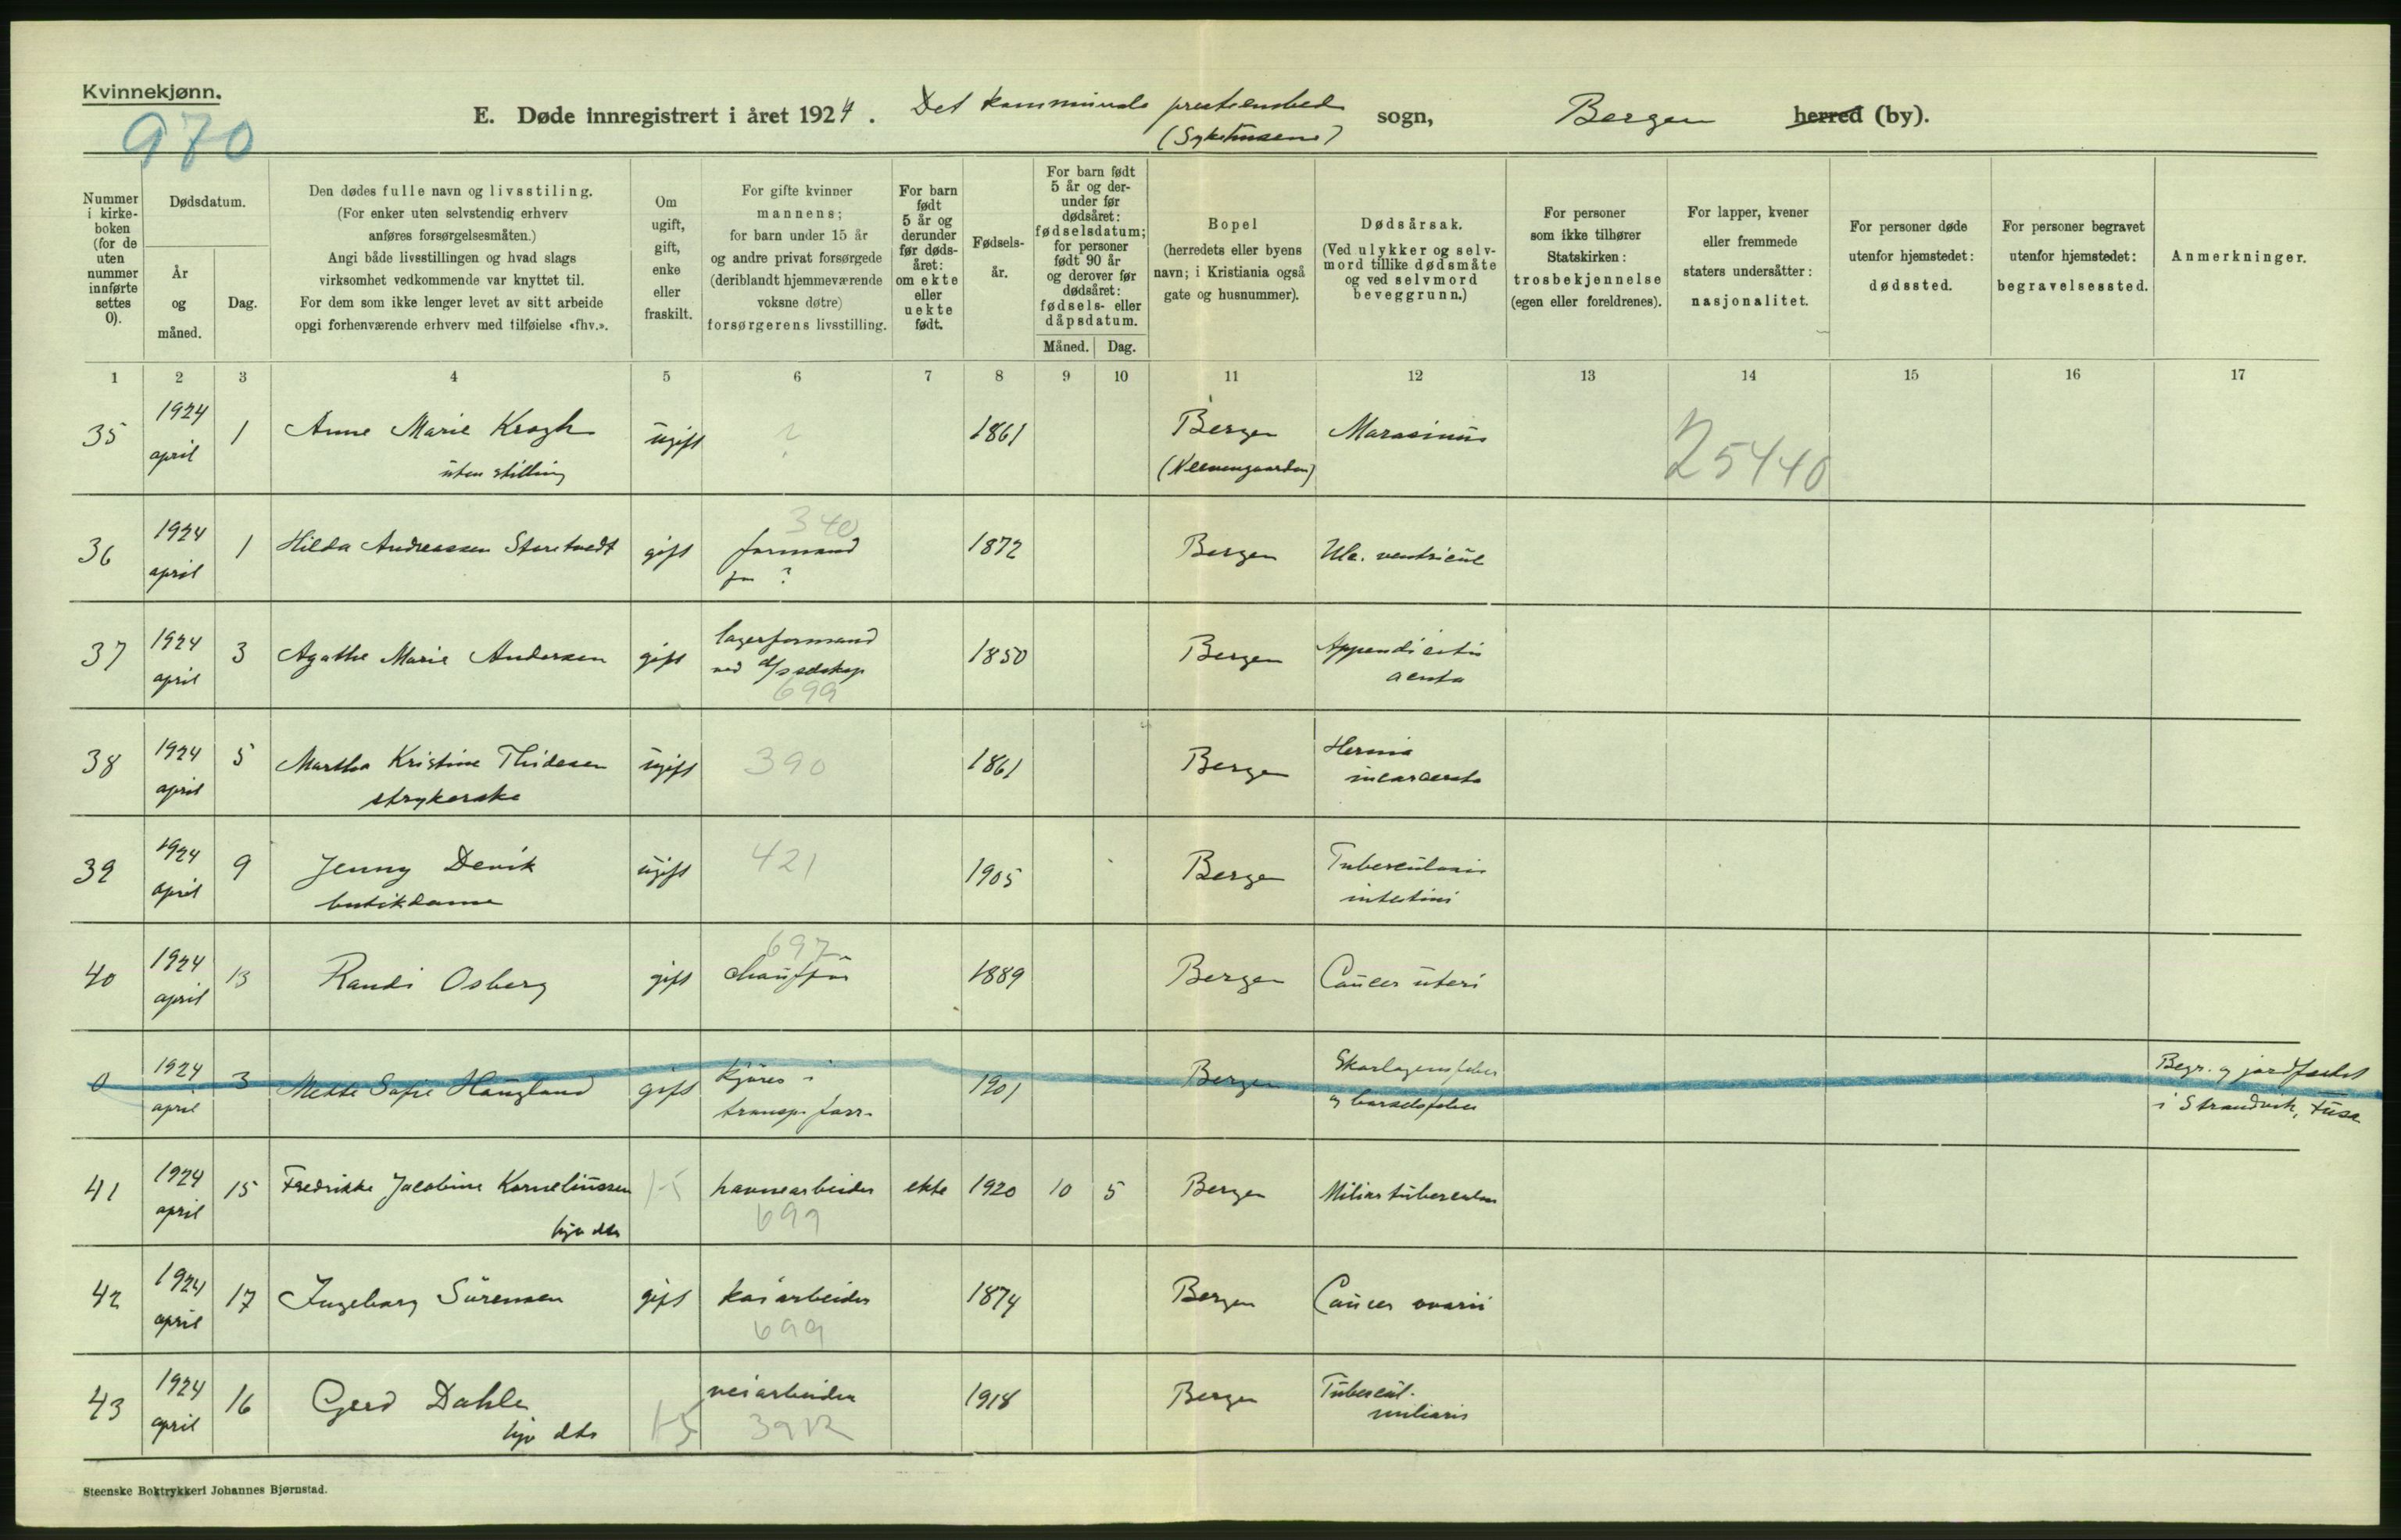 Kvinnekjønn.
970
E. Døde innregistrert i året 1924. Det kommunale presteembed (Sykehusene) sogn, Bergen herred (by).
Nummer i kirkeboken (for de uten nummer innførte settes 0).
Dødsdatum.
År og måned.
Dag.
Den dødes fulle navn og livsstilling.
(For enker uten selvstendig erhverv
anføres forsørgelsesmåten.)
Angi både livsstillingen og hvad slags
virksomhet vedkommende var knyttet til.
For dem som ikke lenger levet av sitt arbeide
opgi forhenværende erhverv med tilføielse «fhv.».
Om ugift, gift, enke eller fraskilt.
For gifte kvinner
mannens;
for barn under 15 år
og andre privat forsørgede
(deriblandt hjemmeværende
voksne døtre)
forsørgerens livsstilling.
For barn født 5 år og derunder før dødsåret: om ekte eller uekte født.
Fødsels-
år.
For barn født
5 år og der-
under før
dødsåret:
fødselsdatum;
for personer
født 90 år
og derover før
dødsåret:
fødsels- eller
dåpsdatum.
Måned. Dag.
Bopel
(herredets eller byens
navn; i Kristiania også
gate og husnummer).
Dødsårsak.
(Ved ulykker og selv-
mord tillike dødsmåte
og ved selvmord
beveggrunn.)
For personer
som ikke tilhører
Statskirken:
trosbekjennelse
(egen eller foreldrenes).
For lapper, kvener
eller fremmede
staters undersåtter:
nasjonalitet.
For personer døde
utenfor hjemstedet:
dødssted.
For personer begravet
utenfor hjemstedet:
begravelsessted.
Anmerkninger.
1 2 3 4 5 6 7 8 9 10 11 12 13 14 15 16 17
35 1924 april 1 Anne Marie Krogh ugift ? 1861 Bergen Marasmus 25440
uten stilling (Neevengaarden)
340
36 1924 april 1 Hilda Andreassen Storetvedt gift formand 1872 Bergen Ulc. ventricul
for ?
37 1924 april 3 Agathe Marie Andersen gift lagerformand 1850 Bergen Appendicitis
ved d/s selskap acuta
699
38 1924 april 5 Martha Kristine Thidesen ugift 390 1861 Bergen Hernia
strykerske incarcerata
39 1924 april 9 Jenny Devik ugift 421 1905 Bergen Tuberculosis
butikdame intestini
697
40 1924 april 13 Randi Osberg gift chauffør 1889 Bergen Cancer uteri
0 1924 april 3 Mette Sofie Haugland gift kjører i 1901 Bergen Skarlagensfeber Begr. og jordfæstet
transp. forr. og barselfeber i Strandvik, Fusa
41 1924 april 15 Fredrikke Jacobine Korneliussen 1-5 havnearbeider ekte 1920 10 5 Bergen Miliartuberculose
hjv dtr 699
42 1924 april 17 Ingeborg Sørensen gift kaiarbeider 1874 Bergen Cancer ovarii
699
43 1924 april 16 Gerd Dahle 1-5 veiarbeider 1918 Bergen Tubercul.
hjv dtr miliaris
Steenske Boktrykkeri Johannes Bjørnstad.